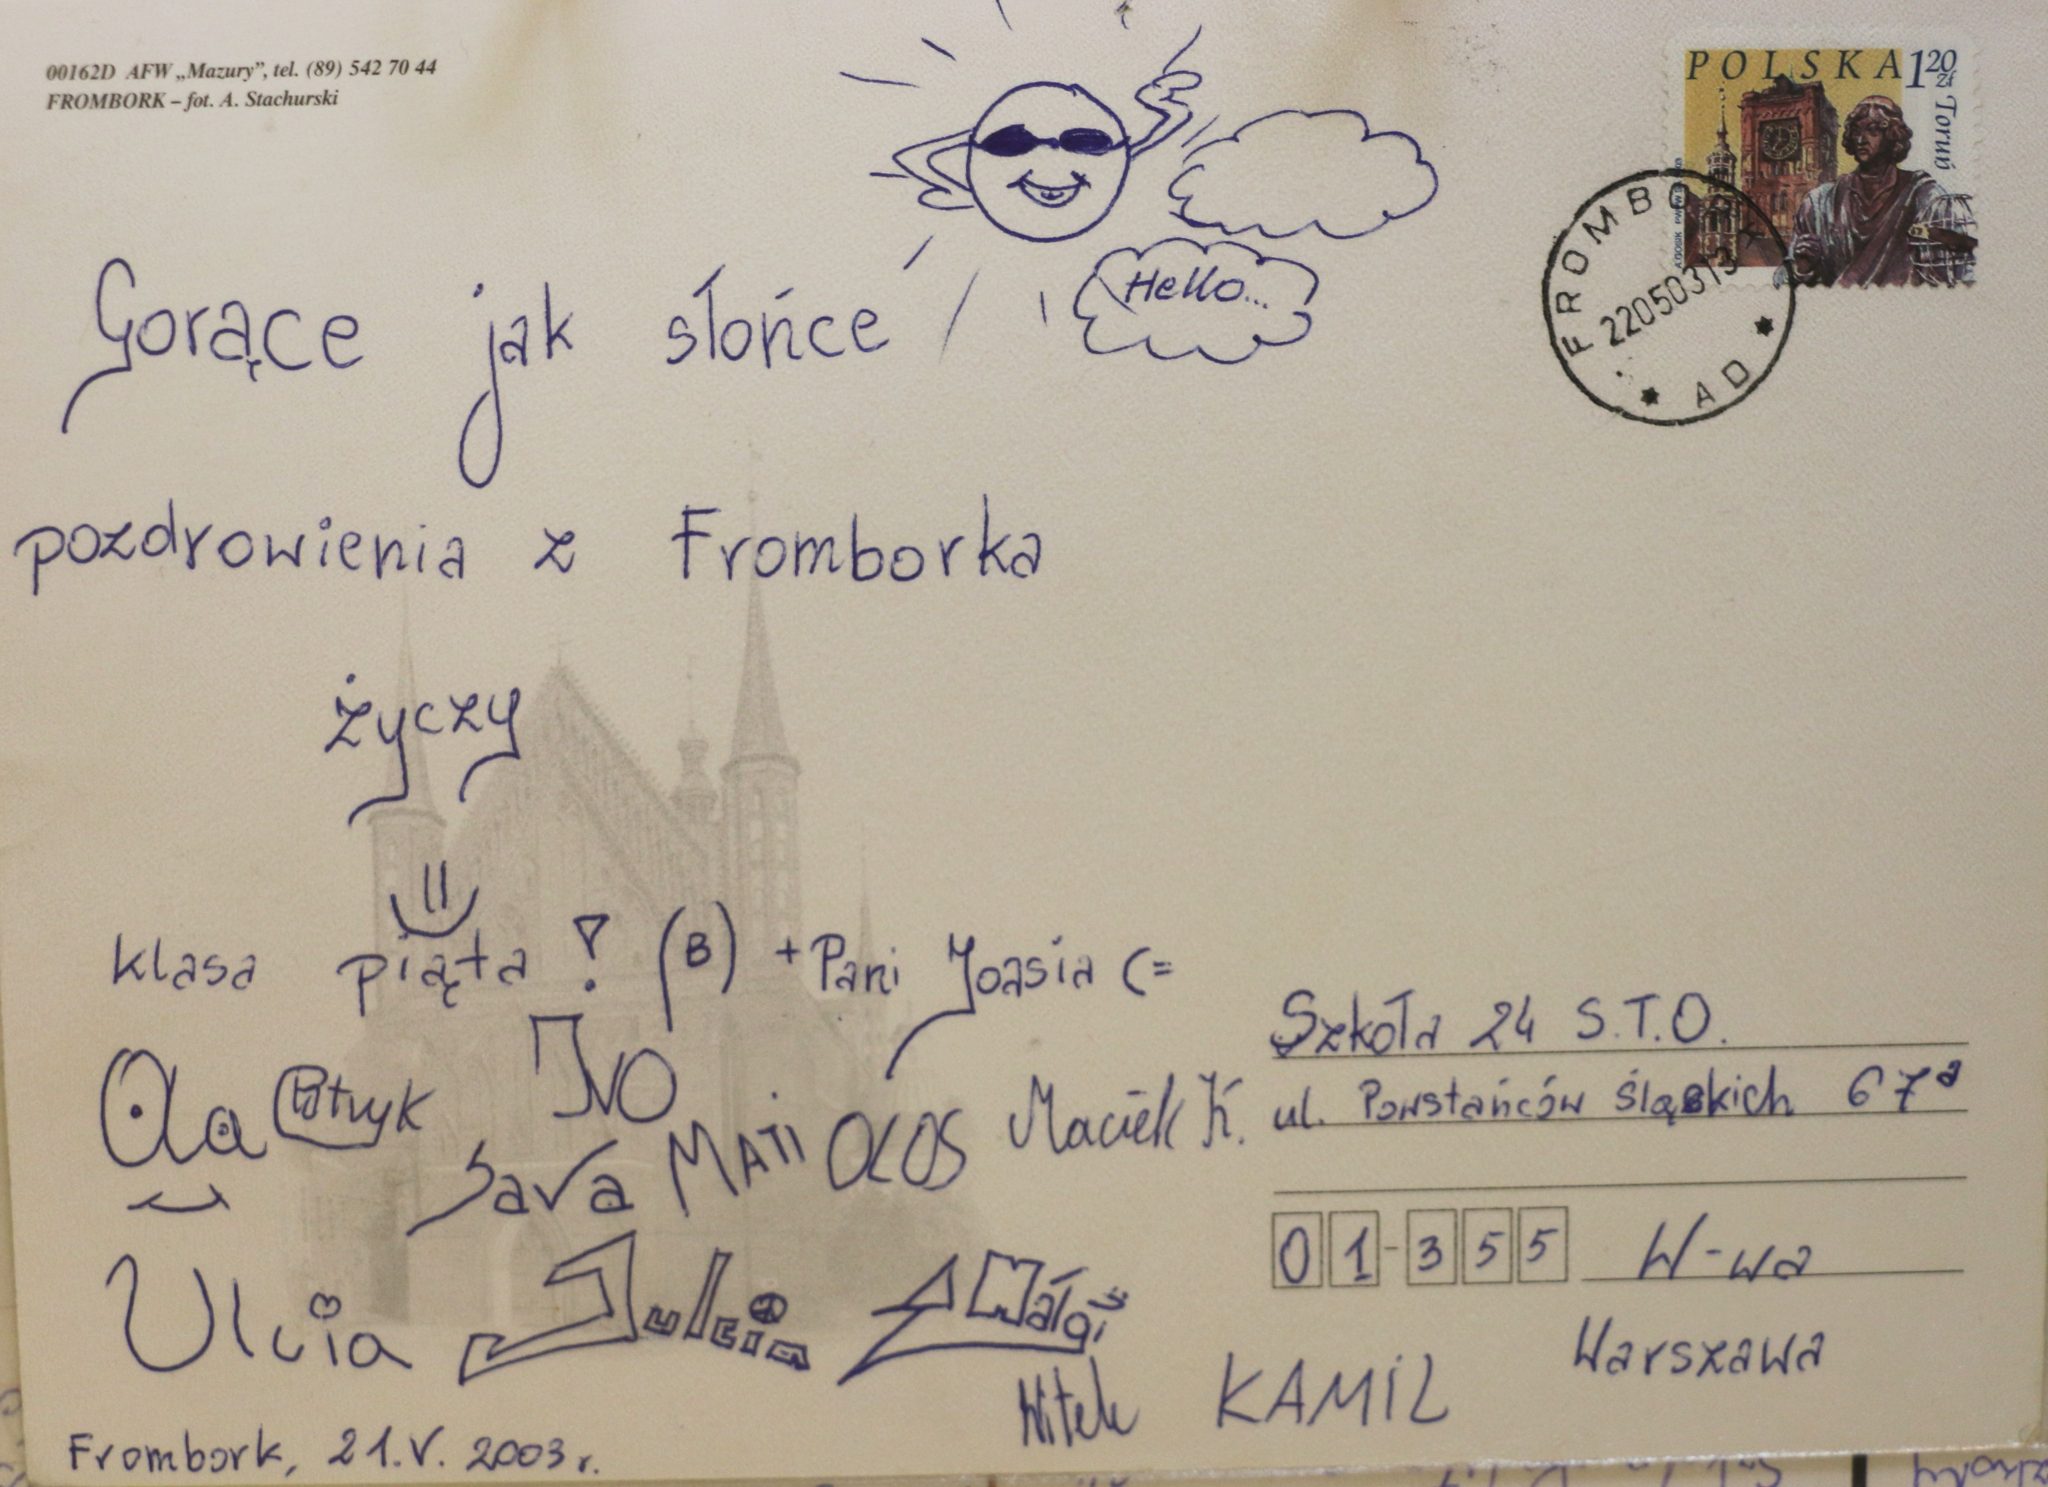 00162D AFW „Mazury”, tel. (89) 542 70 44
FROMBORK – fot. A. Stachurski
POLSKA 1 20 zł
Toruń
FROMBORK
22050313
AD
Hello...
Gorące jak słońce
pozdrowienia z Fromborka
życzy
klasa piąta! (B) + Pani Joasia (=
Ola Patryk IVO
Sara MATI OLOS Maciek K.
Ulcia Julcia Małgi
Witek KAMIL
Frombork, 21.V. 2003 r.
Szkoła 24 S.T.O.
ul. Powstańców Śląskich 67a
01-355 W-wa
Warszawa